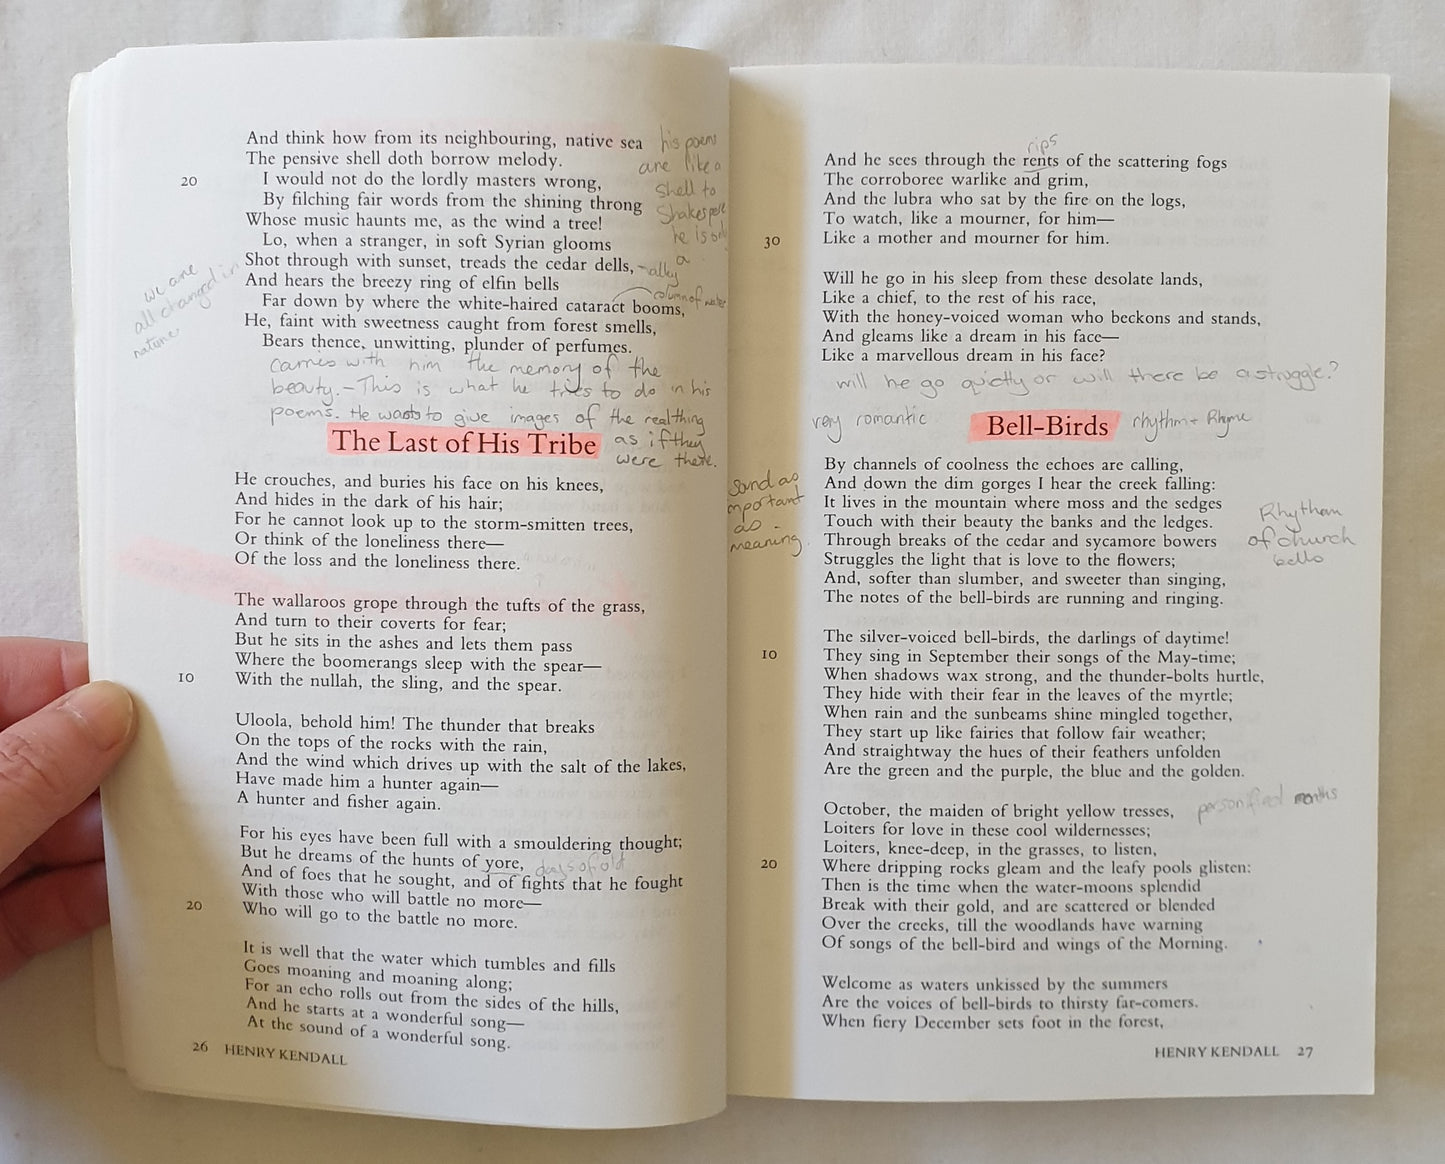 And think how from its neighbouring, native sea
his poems
The pensive shell doth borrow melody.
are like a
20
I would not do the lordly masters wrong,
shell to
By filching fair words from the shining throng
Shakespere
Whose music haunts me, as the wind a tree!
he is only
Lo, when a stranger, in soft Syrian glooms
a
Shot through with sunset, treads the cedar dells,
we are
all changed in
nature
And hears the breezy ring of elfin bells
column of water
Far down by where the white-haired cataract booms,
He, faint with sweetness caught from forest smells,
Bears thence, unwitting, plunder of perfumes.
carries with him the memory of the
beauty. - This is what he tries to do in his
poems. He wants to give images of the real thing
as if they
were there.
The Last of His Tribe
He crouches, and buries his face on his knees,
And hides in the dark of his hair;
For he cannot look up to the storm-smitten trees,
Or think of the loneliness there—
Of the loss and the loneliness there.
The wallaroos grope through the tufts of the grass,
And turn to their coverts for fear;
But he sits in the ashes and lets them pass
Where the boomerangs sleep with the spear—
10
With the nullah, the sling, and the spear.
Uloola, behold him! The thunder that breaks
On the tops of the rocks with the rain,
And the wind which drives up with the salt of the lakes,
Have made him a hunter again—
A hunter and fisher again.
For his eyes have been full with a smouldering thought;
But he dreams of the hunts of yore,
days of old
And of foes that he sought, and of fights that he fought
With those who will battle no more—
20
Who will go to the battle no more.
It is well that the water which tumbles and fills
Goes moaning and moaning along;
For an echo rolls out from the sides of the hills,
And he starts at a wonderful song—
At the sound of a wonderful song.
26 HENRY KENDALL
rips
And he sees through the rents of the scattering fogs
The corroboree warlike and grim,
And the lubra who sat by the fire on the logs,
To watch, like a mourner, for him—
30
Like a mother and mourner for him.
Will he go in his sleep from these desolate lands,
Like a chief, to the rest of his race,
With the honey-voiced woman who beckons and stands,
And gleams like a dream in his face—
Like a marvellous dream in his face?
will he go quietly or will there be a struggle?
very romantic
Bell-Birds
rhythm + Rhyme
By channels of coolness the echoes are calling,
And down the dim gorges I hear the creek falling:
It lives in the mountain where moss and the sedges
Touch with their beauty the banks and the ledges.
Through breaks of the cedar and sycamore bowers
Struggles the light that is love to the flowers;
And, softer than slumber, and sweeter than singing,
The notes of the bell-birds are running and ringing.
Sound as
important
as
meaning.
Rhythem
of church
bells
The silver-voiced bell-birds, the darlings of daytime!
10
They sing in September their songs of the May-time;
When shadows wax strong, and the thunder-bolts hurtle,
They hide with their fear in the leaves of the myrtle;
When rain and the sunbeams shine mingled together,
They start up like fairies that follow fair weather;
And straightway the hues of their feathers unfolden
Are the green and the purple, the blue and the golden.
October, the maiden of bright yellow tresses,
personified months
Loiters for love in these cool wildernesses;
Loiters, knee-deep, in the grasses, to listen,
20
Where dripping rocks gleam and the leafy pools glisten:
Then is the time when the water-moons splendid
Break with their gold, and are scattered or blended
Over the creeks, till the woodlands have warning
Of songs of the bell-bird and wings of the Morning.
Welcome as waters unkissed by the summers
Are the voices of bell-birds to thirsty far-comers.
When fiery December sets foot in the forest,
HENRY KENDALL 27